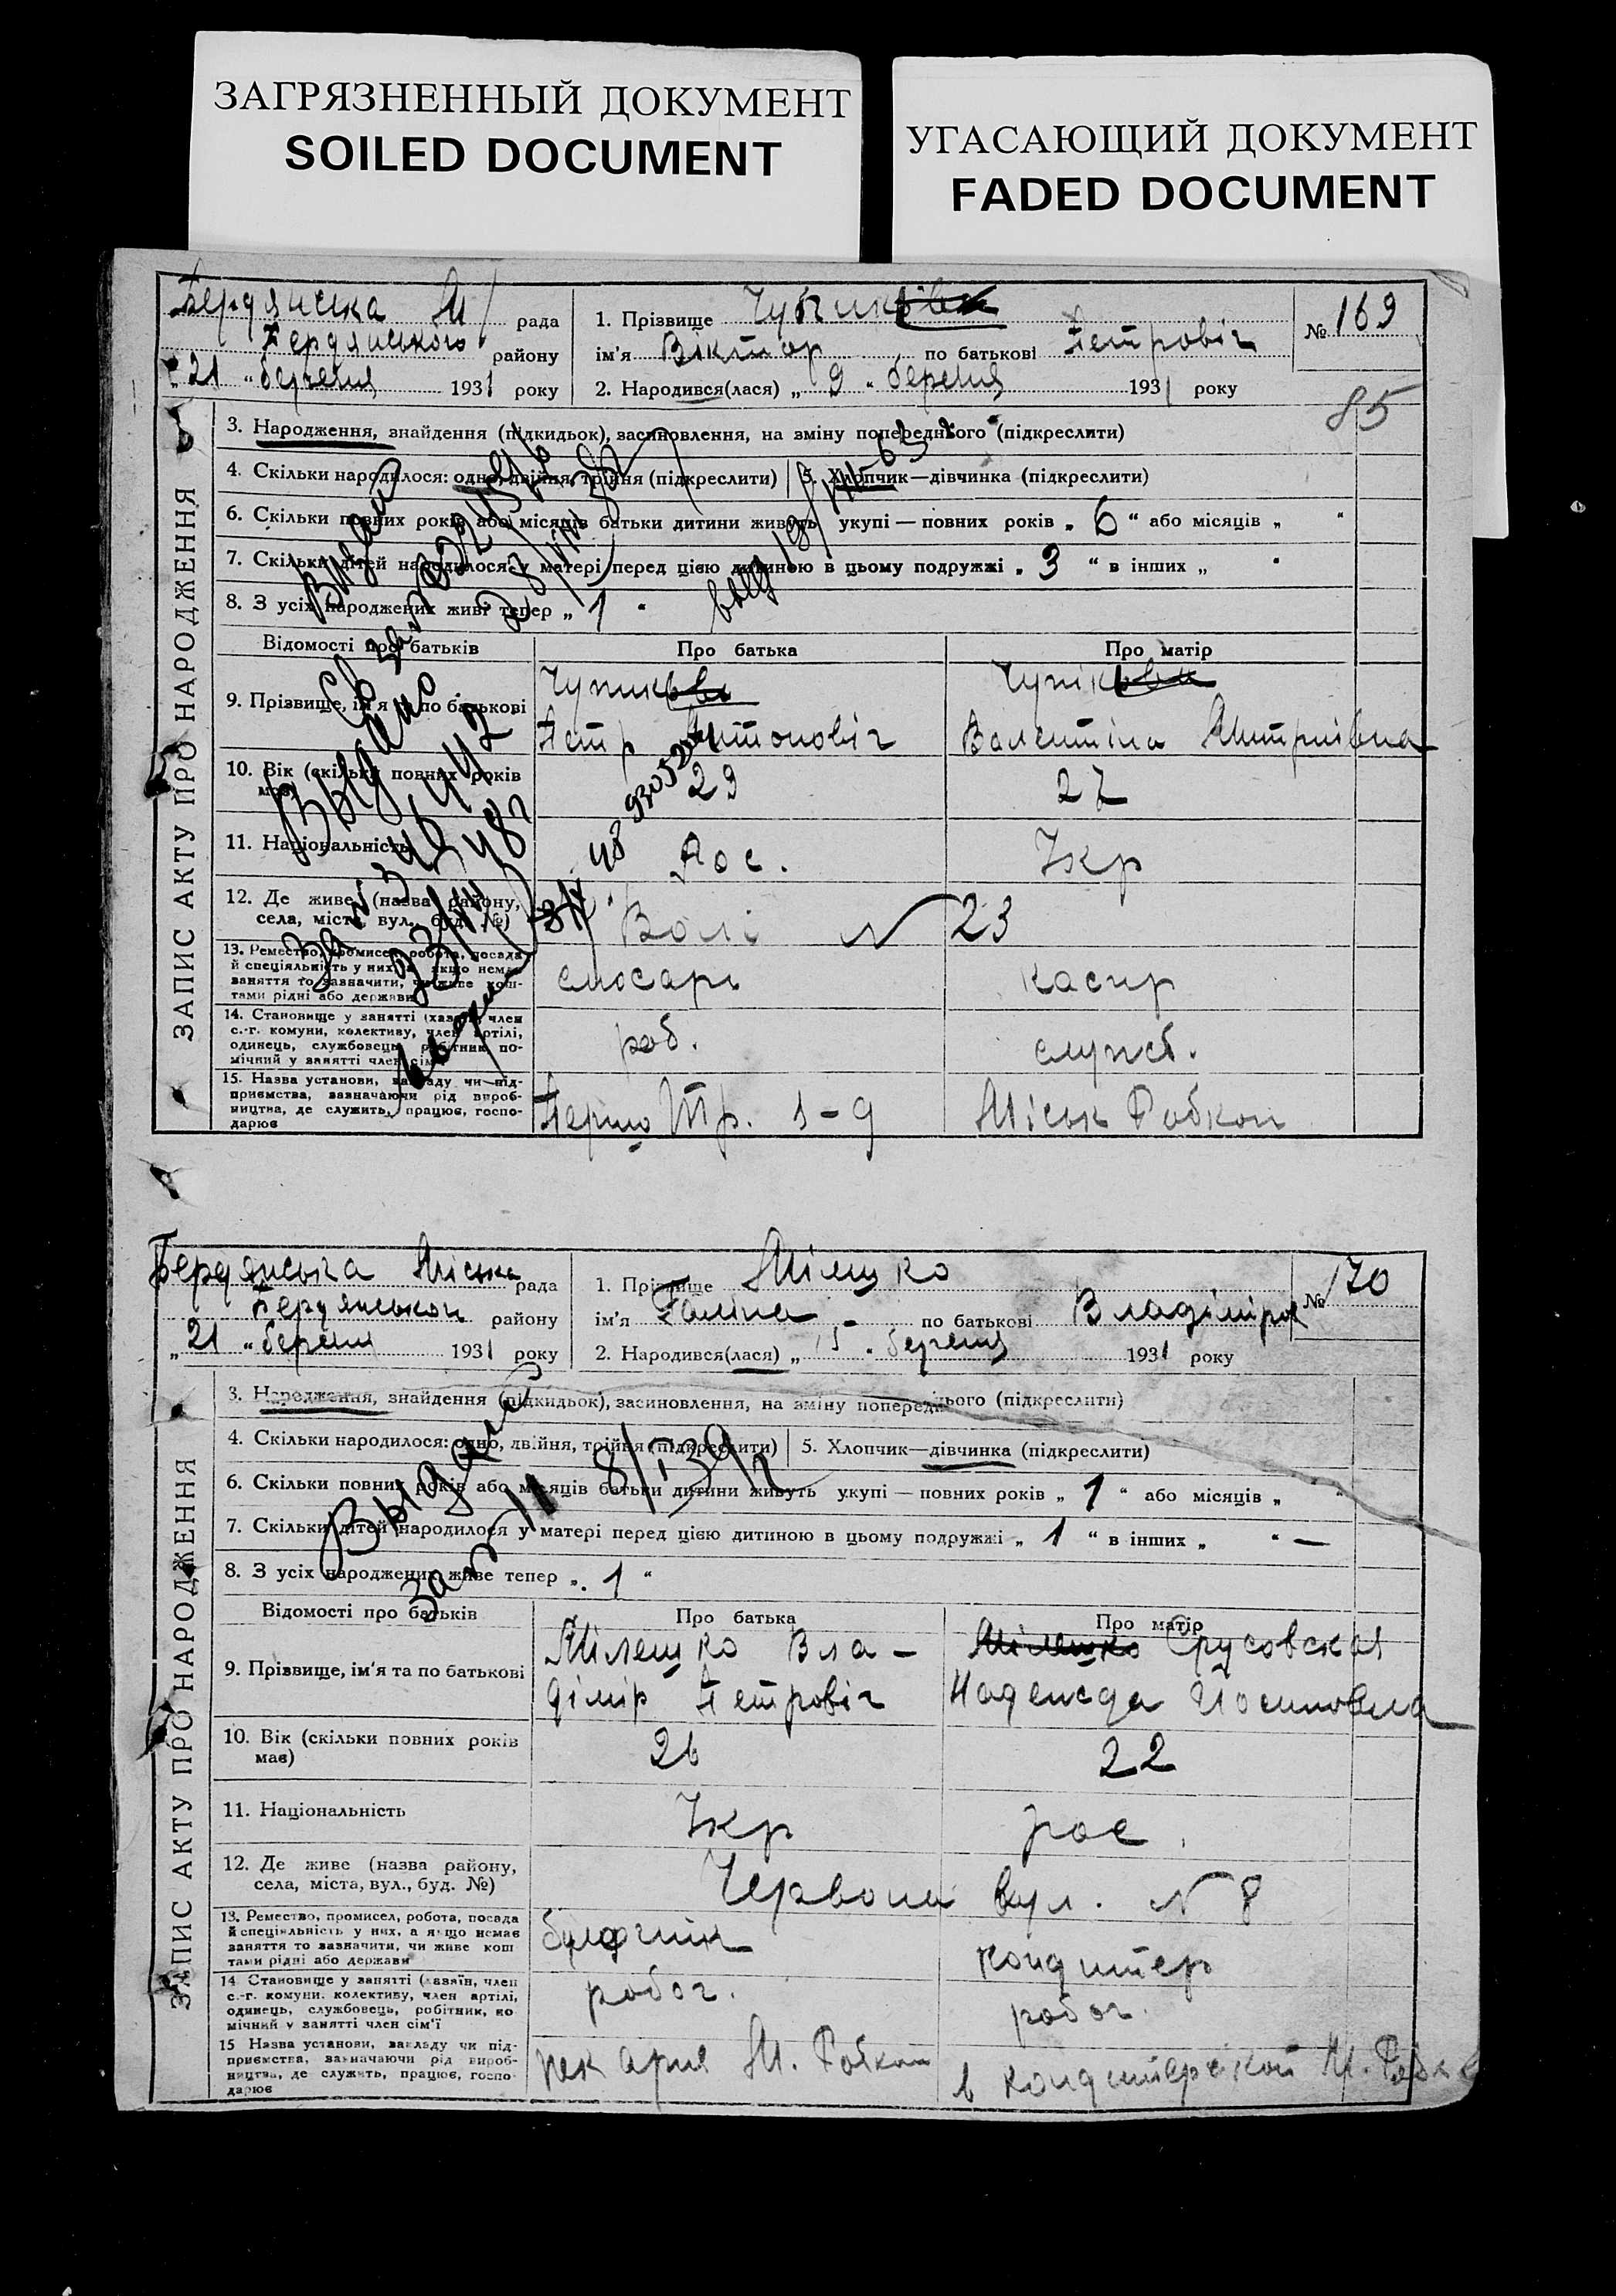 ЗАГРЯЗНЕННЫЙ ДОКУМЕНТ
SOILED DOCUMENT
УГАСАЮЩИЙ ДОКУМЕНТ
FADED DOCUMENT
ЗАПИС АКТУ ПРО НАРОДЖЕННЯ
Бердянська М рада
Бердянського району
„21 “ березня 1931 року
1. Прізвище
ім'я Віктор по батькові Петровіч
2. Народився(лася) „ 9 “ березня 1931 року
№ 169
85
3. Народження, знайдення (підкидьок), засиновлення, на зміну попереднього (підкреслити)
4. Скільки народилося: одно, двійня, трійня (підкреслити)
5. Хлопчик—дівчинка (підкреслити)
6. Скільки повних років або місяців батьки дитини живуть укупі — повних років „ 6 “ або місяців „ “
7. Скільки дітей народилося у матері перед цією дитиною в цьому подружжі „ 3 “ в інших „ “
8. З усіх народжених живе тепер „ 1 “
Відомості про батьків
Про батька
Про матір
9. Прізвище, ім'я та по батькові
Петр Антоновіч
Валентіна Дмитриівна
10. Вік (скільки повних років має)
29
27
11. Національність
Рос.
Укр
12. Де живе (назва району,
села, міста, вул., буд. №)
Волі № 23
13. Ремество, промисел, робота, посада
й спеціяльність у них, а якщо немає
заняття то зазначити, чи живе кош-
тами рідні або держави
слюсарь
касир
14. Становище у занятті (хазяїн, член
с.-г. комуни, колективу, член артілі,
одинець, службовець, робітник, по-
мічний у занятті член сім'ї
роб.
служб.
15. Назва установи, закладу чи під-
приємства, зазначаючи рід вироб-
ництва, де служить, працює, госпо-
дарює
Перше Тр. 1-9
Міськ Робкоп
Видано
Выдано
ЗАПИС АКТУ ПРО НАРОДЖЕННЯ
Бердянська Міська рада
Бердянськои району
„21 “ березня 1931 року
1. Прізвище Мілешко
ім'я Галіна по батькові Владіміров
2. Народився(лася) „ 15 “ березня 1931 року
№ 170
3. Народження, знайдення (підкидьок), засиновлення, на зміну попереднього (підкреслити)
4. Скільки народилося: одно, двійня, трійня (підкреслити)
5. Хлопчик—дівчинка (підкреслити)
6. Скільки повних років або місяців батьки дитини живуть укупі — повних років „ 1 “ або місяців „ “
7. Скільки дітей народилося у матері перед цією дитиною в цьому подружжі „ 1 “ в інших „ “ —
8. З усіх народжених живе тепер „ 1 “
Відомості про батьків
Про батька
Про матір
9. Прізвище, ім'я та по батькові
Мілешко Вла-
дімір Петровіч
Мілешко Срусовская
Надежда Йосиповна
10. Вік (скільки повних років
має)
26
22
11. Національність
Укр
рос.
12. Де живе (назва району,
села, міста, вул., буд. №)
Червона вул. № 8
13. Ремество, промисел, робота, посада
й спеціяльність у них, а якщо немає
заняття то зазначити, чи живе кош
тами рідні або держави
кондитер
14 Становище у занятті (хазяїн, член
с.-г. комуни, колективу, член артілі,
одинець, службовець, робітник, по
мічний у занятті член сім'ї
робоч.
робоч.
15 Назва установи, закладу чи під-
приємства, зазначаючи рід вироб-
ництва, де служить, працює, госпо-
дарює
пекария М. Робкоп
в кондитерской М. Робк
Выдано
за № 11 8/I 39 г